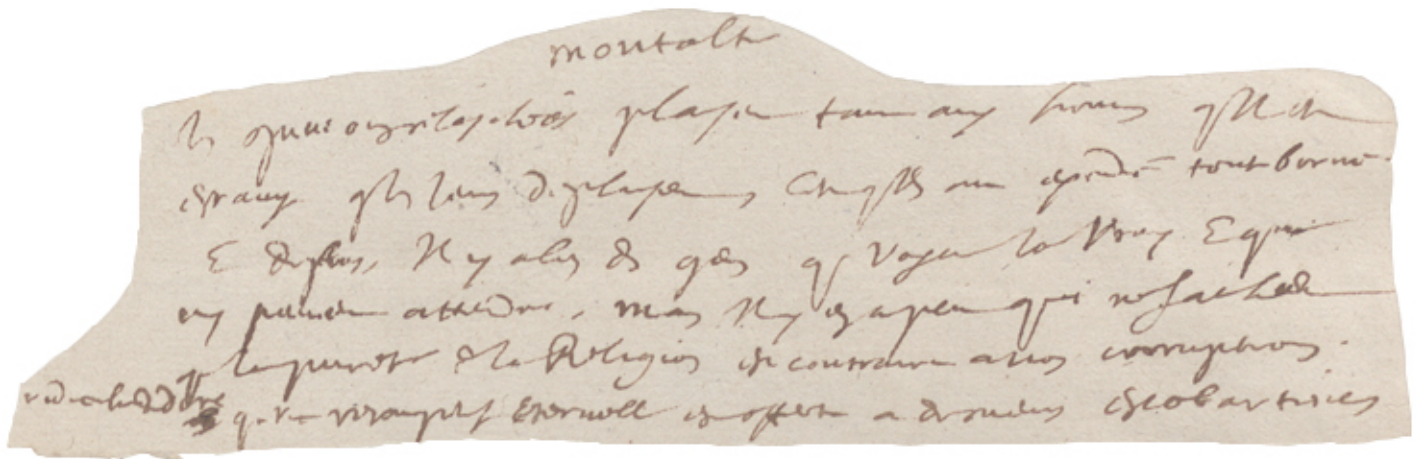 montalte
les opinions relaschées plaisent tant aux hommes qu'il est
estrange que les leurs desplaisent. C'est qu'ils ont excedé toute borne.
Et de plus, Il y a bien des gens qui voyent le vray Et qui
n'y peuvent atteindre, mais Il y en a peu qui ne sachent
que la pureté de la Religion est contraire a nos corruptions.
ridicule de dire qu'une recompense eternelle est offerte a des moeurs escobartines